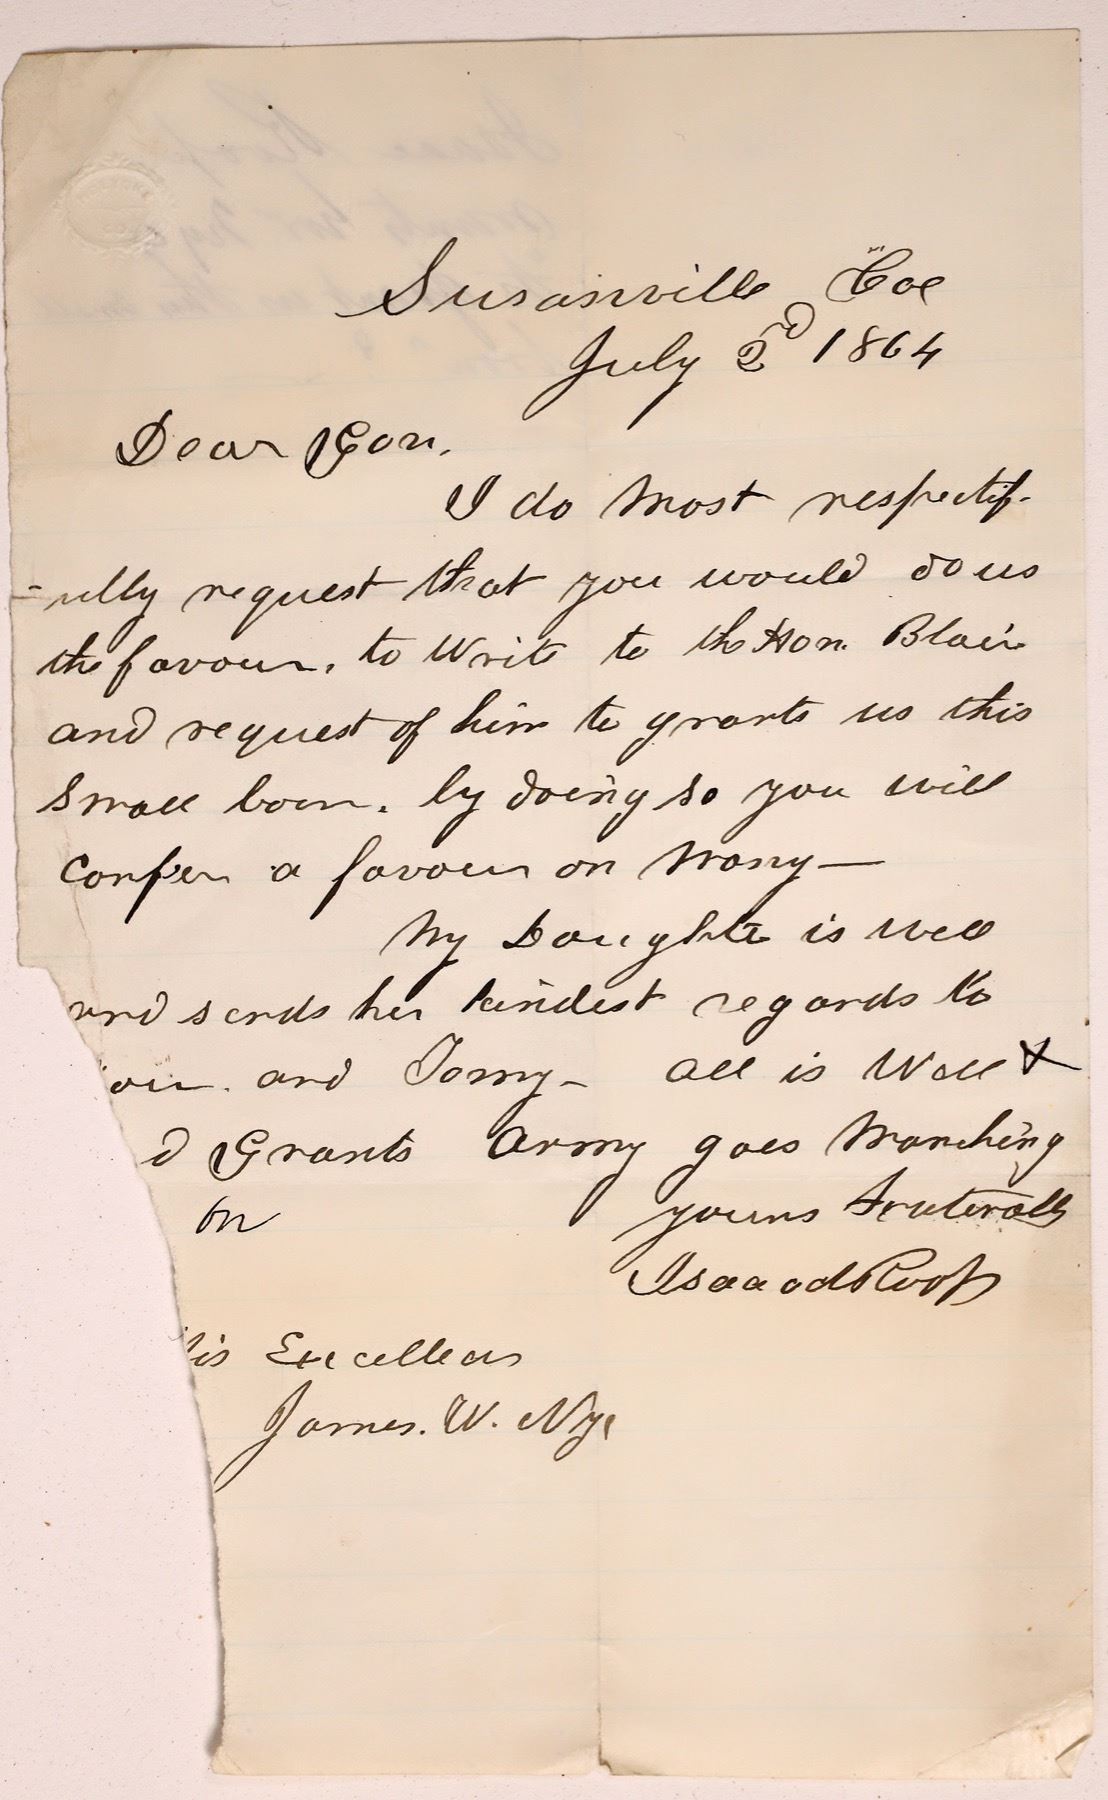 Susanville Cal
July 2nd 1864
Dear Gov.
I do Most respectif-
-ully request that you would do us
the favour, to Write to the Hon. Blair
and request of him to grants us this
Small boon. by doing so you will
Confer a favour on Many—
My Daughter is well
and sends her kindest regards to
ou. and Tomy— All is Well &
d Grants Army goes Marching
on yours Fraternally
Isaac Roop
is Excellency
James. W. Nye